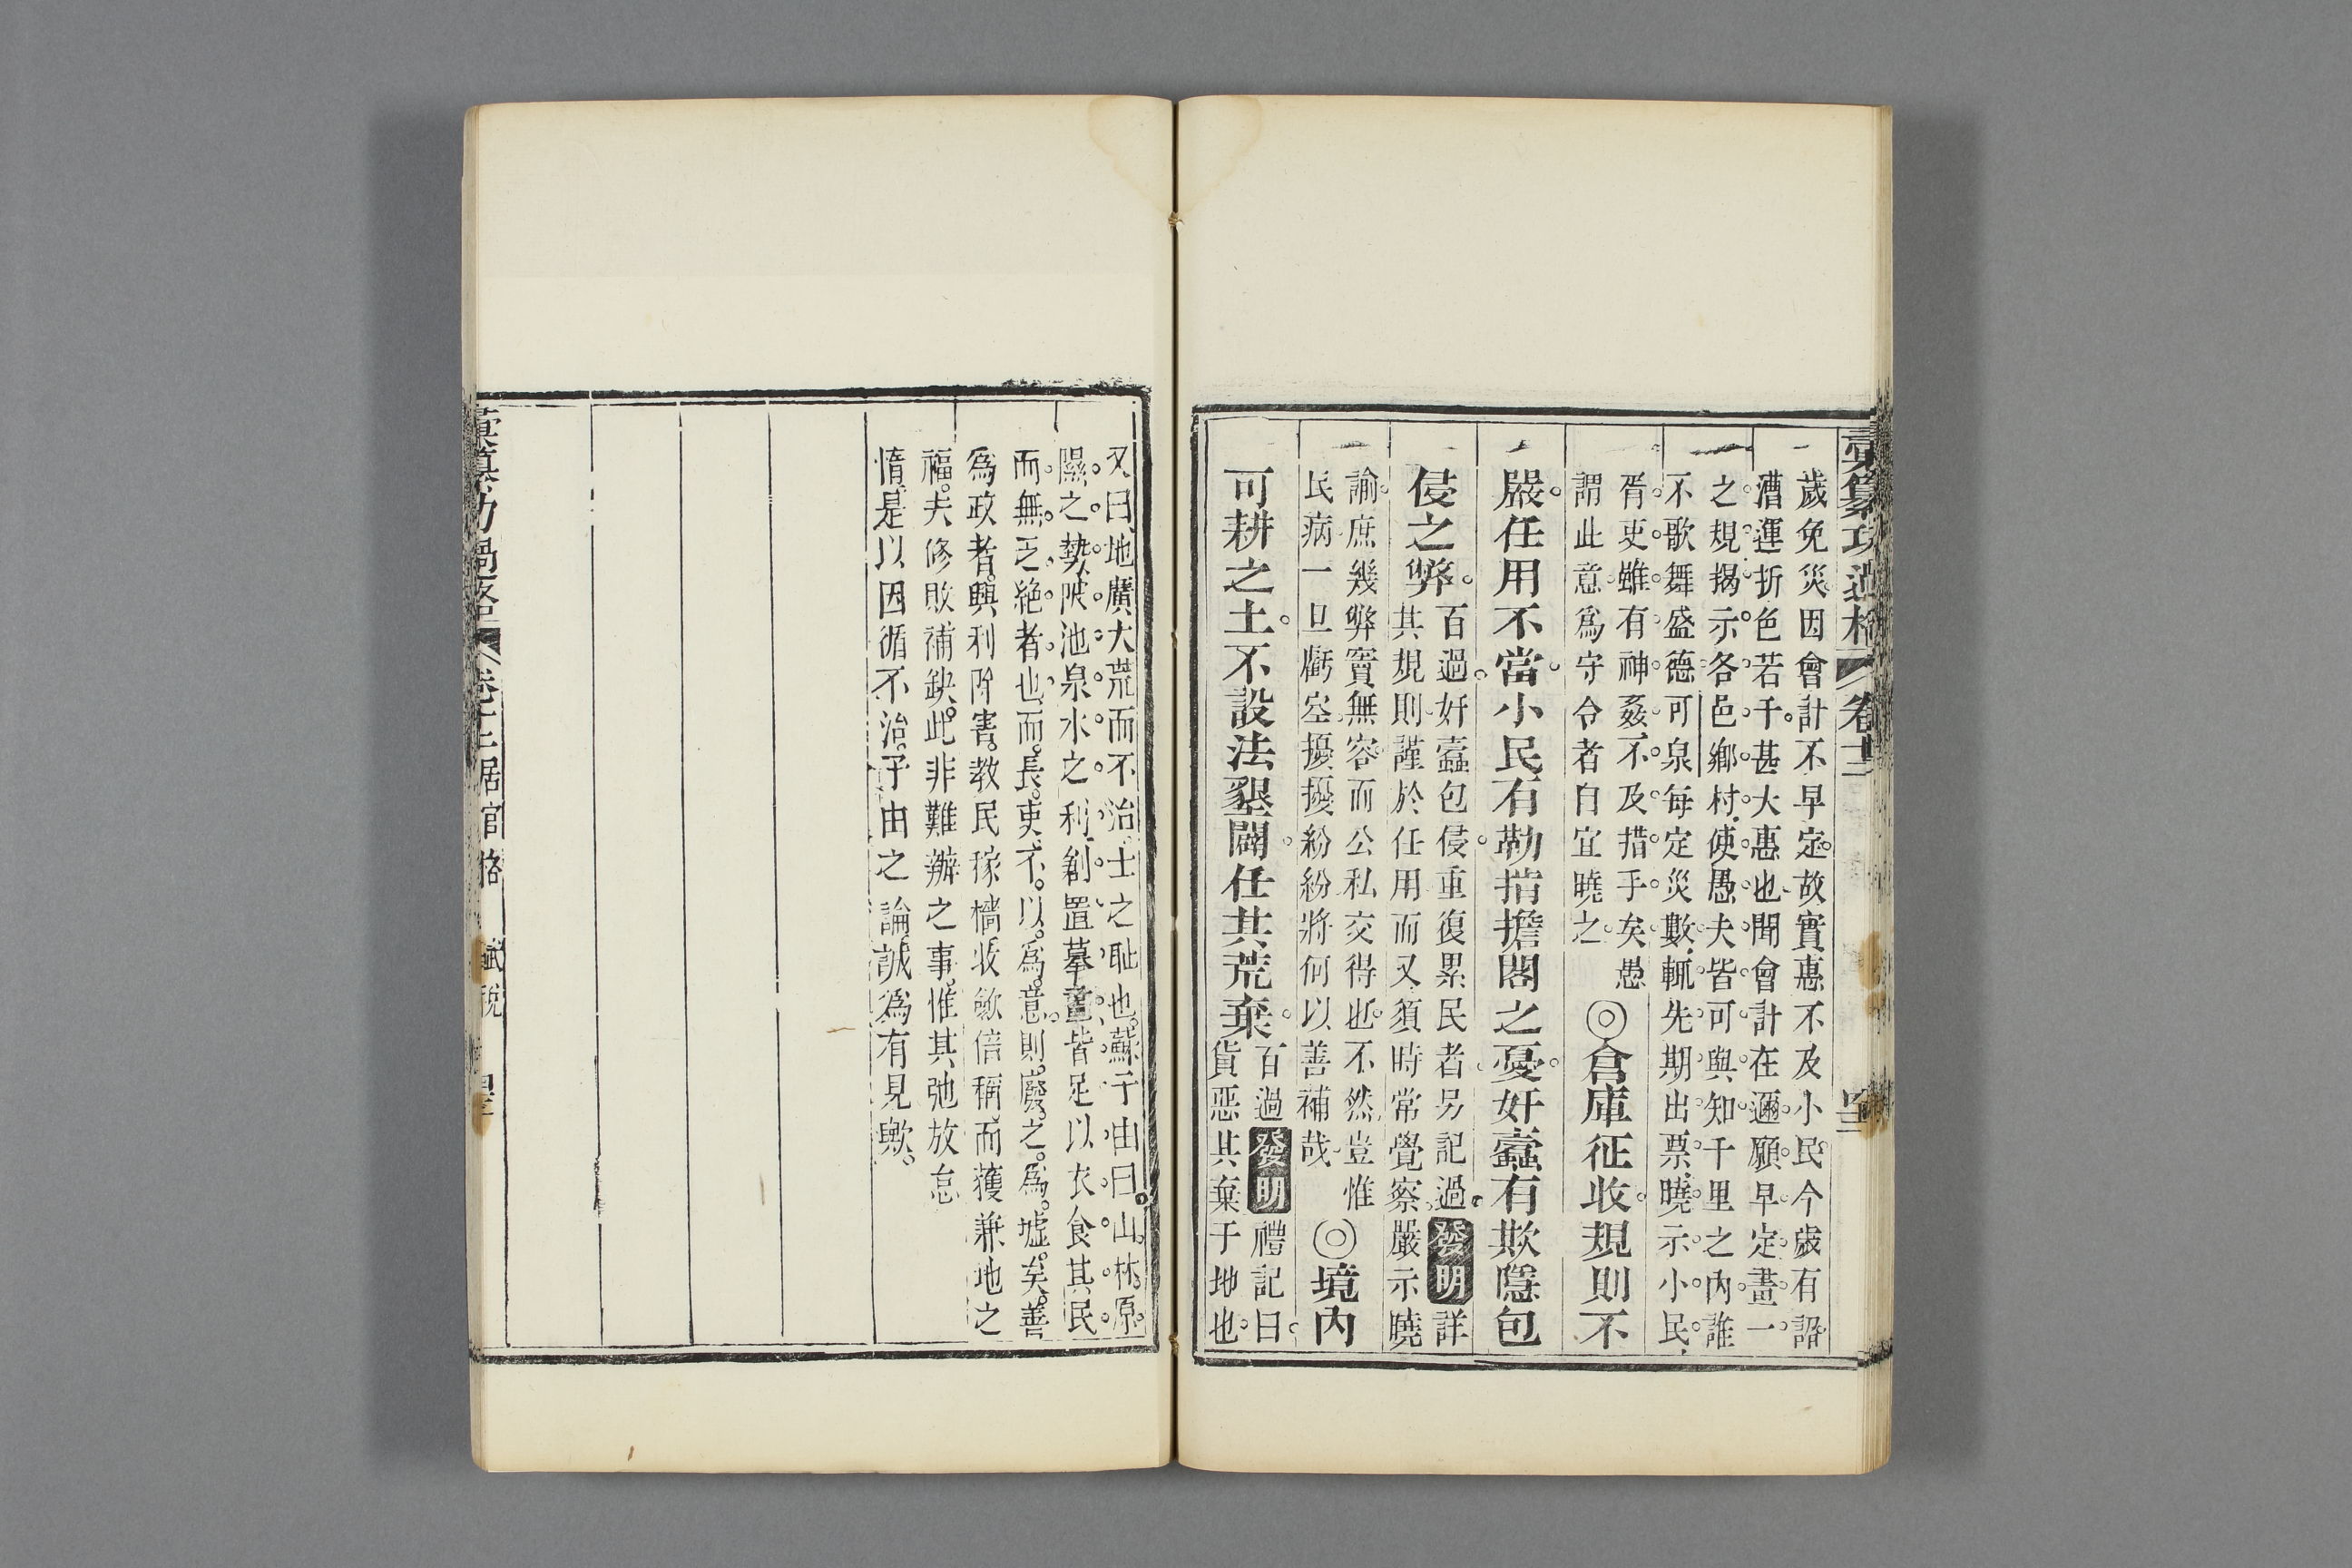 彙纂功過格 卷十二
歲免災因會計不早定故實惠不及小民今歲有詔
漕運折色若干甚大惠也聞會計在邇願早定畫一
之規揭示各邑鄉村使愚夫皆可與知千里之內誰
不歌舞盛德可泉每定災數輒先期出票曉示小民
胥吏雖有神姦不及措手矣愚
謂此意爲守令者自宜曉之
◎倉庫征收規則不
嚴任用不當小民有勒揹擔閣之憂奸蠹有欺隱包
侵之弊
百過奸蠹包侵重復累民者另記過發明詳
其規則謹於任用而又須時常覺察嚴示曉
諭庶幾弊竇無容而公私交得也不然豈惟
民病一旦虧空擾擾紛紛將何以善補哉
◎境內
可耕之土不設法墾闢任其荒棄
百過發明禮記曰
貨惡其棄于地也
又曰地廣大荒而不治士之耻也蘇子由曰山林原
隰之勢陂池泉水之利創置摹畫皆足以衣食其民
而無乏絕者也而長吏不以爲意則廢之爲墟矣善
爲政者興利除害教民稼穡收斂倍稱而獲兼地之
福夫修敗補缺此非難辦之事惟其弛放怠
惰是以因循不治子由之論誠爲有見歟
彙纂功過格 卷十二居官格 賦稅